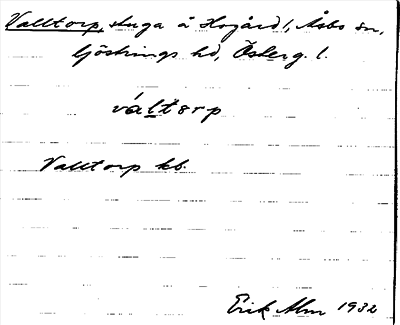 Valltorp, stuga å Hogård!, Åsbo sn,
Göstrings hd, Österg. l.
váltorp
Valltorp kb.
Erik Alm 1932